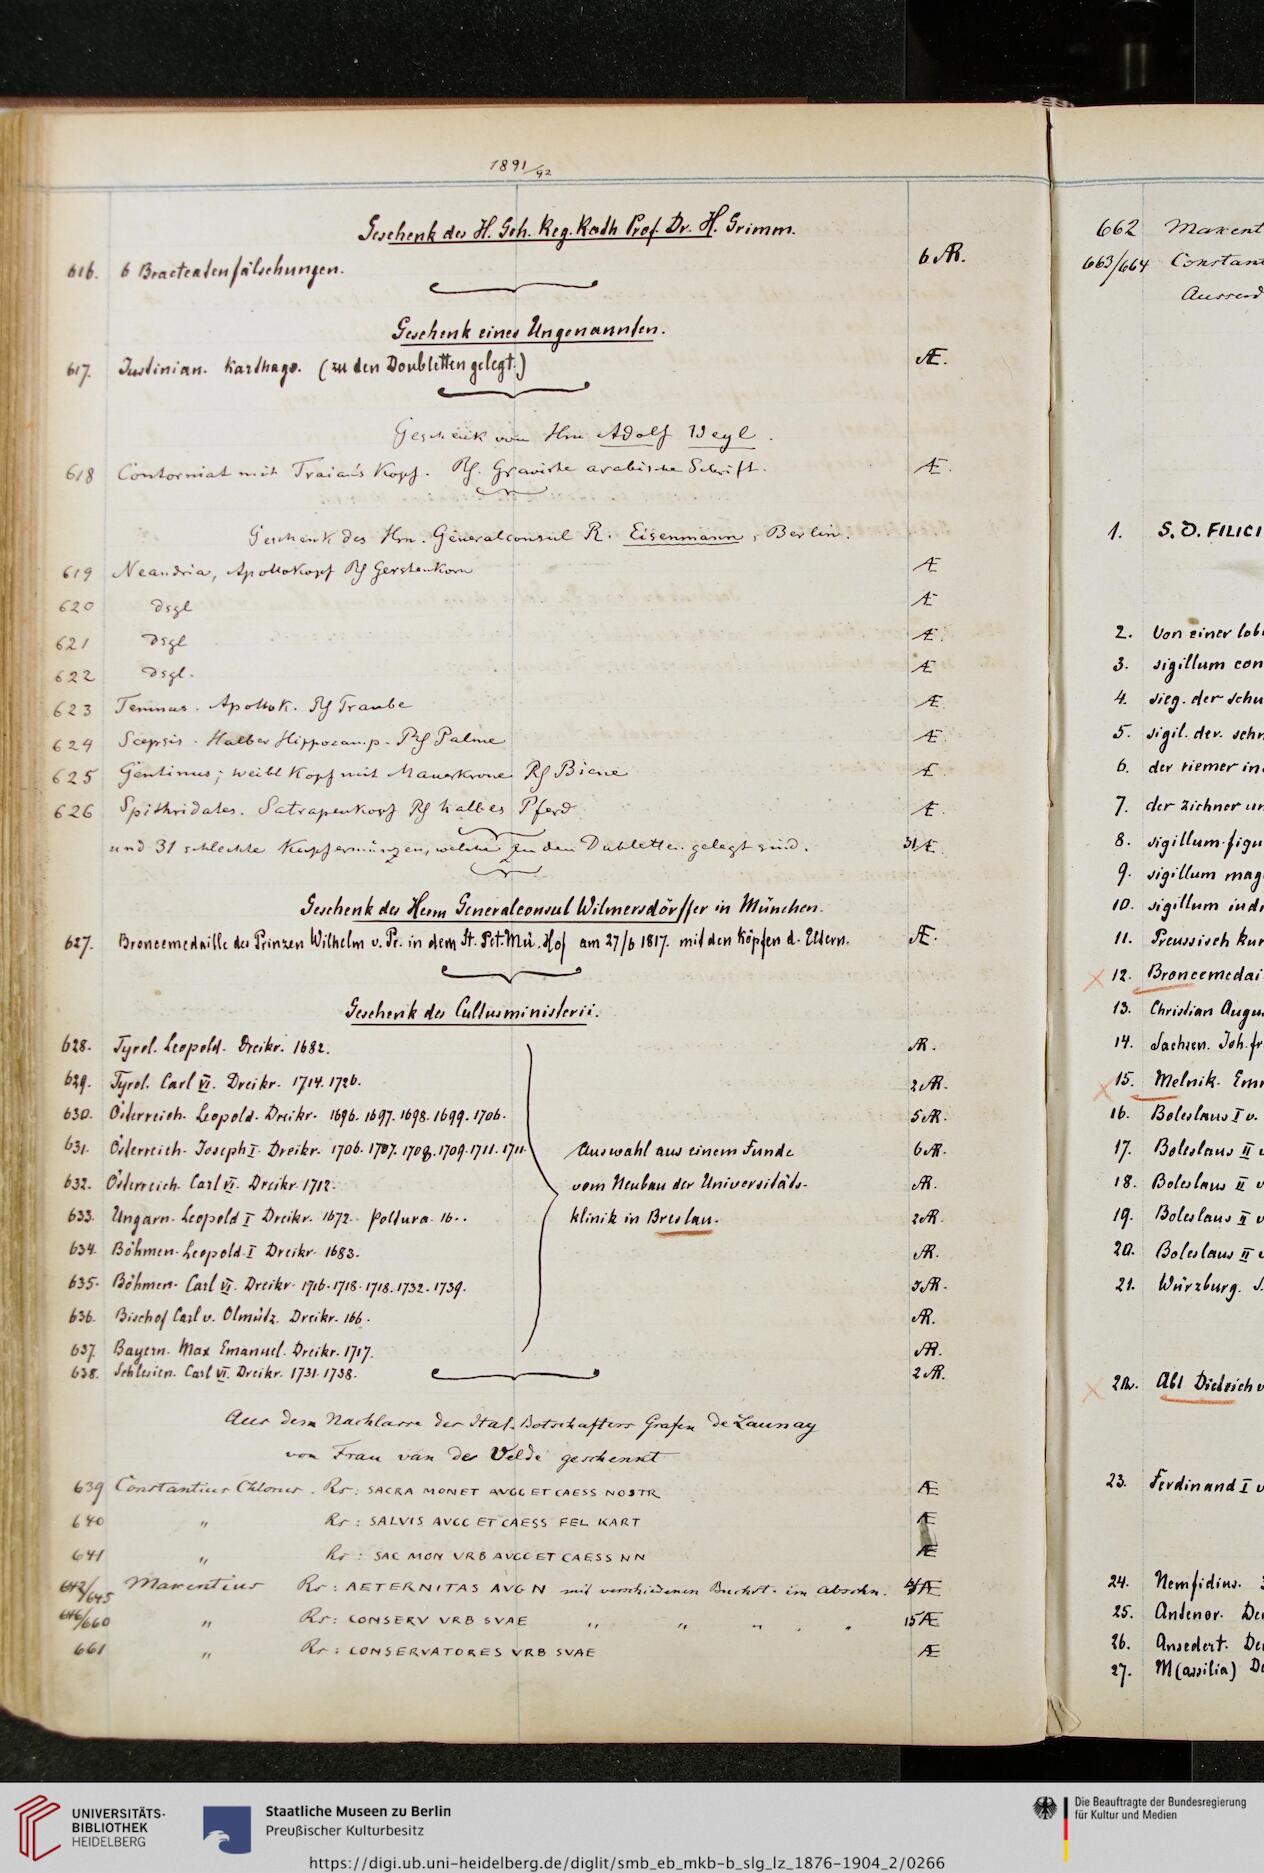 1891/92
Geschenk des H. Geh. Reg. Rath Prof. Dr. H. Grimm.
616. 6 Bracteatenfälschungen. 6 AR.
Geschenk eines Ungenannten.
617. Justinian. Karthago. (zu den Doubletten gelegt.) Æ.
Geschenk von Hrn Adolf Weyl.
618 Contorniat mit Traian's Kopf. Rf. Gravirte arabische Schrift. Æ.
Geschenk des Hrn. Generalconsul R. Eisenmann, Berlin.
619 Neandria, Apollokopf Rf Gerstenkorn Æ
620 dsgl Æ
621 dsgl Æ.
622 dsgl. Æ
623 Temnus. Apollok. Rf Traube Æ.
624 Scepsis. Halber Hippocamp. Rf Palme Æ.
625 Gentinus; weibl Kopf mit Mauerkrone Rf Biene Æ
626 Spithridates. Satrapenkopf Rf halbes Pferd Æ.
und 31 schlechte Kupfermünzen, welche zu den Dubletten gelegt sind. 31 Æ.
Geschenk des Herrn Generalconsul Wilmersdörffer in München.
627. Broncemedaille des Prinzen Wilhelm v. Pr. in dem St. Pet. Mü. Hof am 27/6 1817. mit den Köpfen d. Eltern. Æ.
Geschenk des Cultusministerii.
628. Tyrol. Leopold. Dreikr. 1682. AR.
629. Tyrol. Carl VI. Dreikr. 1714. 1726. 2 AR.
630. Österreich. Leopold. Dreikr. 1696. 1697. 1698. 1699. 1706. 5 AR.
631. Österreich. Joseph I. Dreikr. 1706. 1707. 1708. 1709. 1711. 1711. Auswahl aus einem Funde 6 AR.
632. Österreich. Carl VI. Dreikr. 1712. vom Neubau der Universitäts- AR.
633. Ungarn. Leopold I Dreikr. 1672. Poltura. 16.. klinik in Breslau. 2 AR.
634. Böhmen. Leopold. I Dreikr. 1683. AR.
635. Böhmen. Carl VI. Dreikr. 1716. 1718. 1718. 1732. 1739. 5 AR.
636. Bischof Carl v. Olmütz. Dreikr. 166. AR.
637. Bayern. Max Emanuel. Dreikr. 1717. AR.
638. Schlesien. Carl VI. Dreikr. 1731. 1738. 2 AR.
Aus dem Nachlasse des Ital. Botschafters Grafen De Launay
von Frau van der Velde geschenkt
639 Constantius Chlorus. Rs: SACRA MONET AVGG ET CAESS NOSTR Æ
640 " Rs: SALVIS AVGG ET CAESS FEL KART Æ
641 " Rs: SAC MON VRB AVGG ET CAESS NN Æ
642/645 Maxentius Rs: AETERNITAS AVG N mit verschiedenen Buchst. im Abschn. 4 Æ
646/660 " Rs: CONSERV VRB SVAE " " " " " 15 Æ
661 " Rs: CONSERVATORES VRB SVAE Æ
662 Maxent
663/664 Constan
1. S. D. FILICI
2. Von einer lob
3. sigillum con
4. sieg. der schu
5. sigil. der. sch
6. der riemer in
7. der zichner un
8. sigillum figu
9. sigillum mag
10. sigillum ind
11. Preussisch kur
12. Broncemedai
13. Christian Augu
14. Sachsen. Joh. fr
15. Melnik. Em
16. Boleslaus I v.
17. Boleslaus II
18. Boleslaus II
19. Boleslaus II
20. Boleslaus II
21. Würzburg.
22. Abt Dietrich
23. Ferdinand I
24. Nemfidius.
25. Antenor. De
26. Ansedert. De
27. M(assilia) De
UNIVERSITÄTS-
BIBLIOTHEK
HEIDELBERG
Staatliche Museen zu Berlin
Preußischer Kulturbesitz
Die Beauftragte der Bundesregierung
für Kultur und Medien
https://digi.ub.uni-heidelberg.de/diglit/smb_eb_mkb-b_slg_lz_1876-1904_2/0266